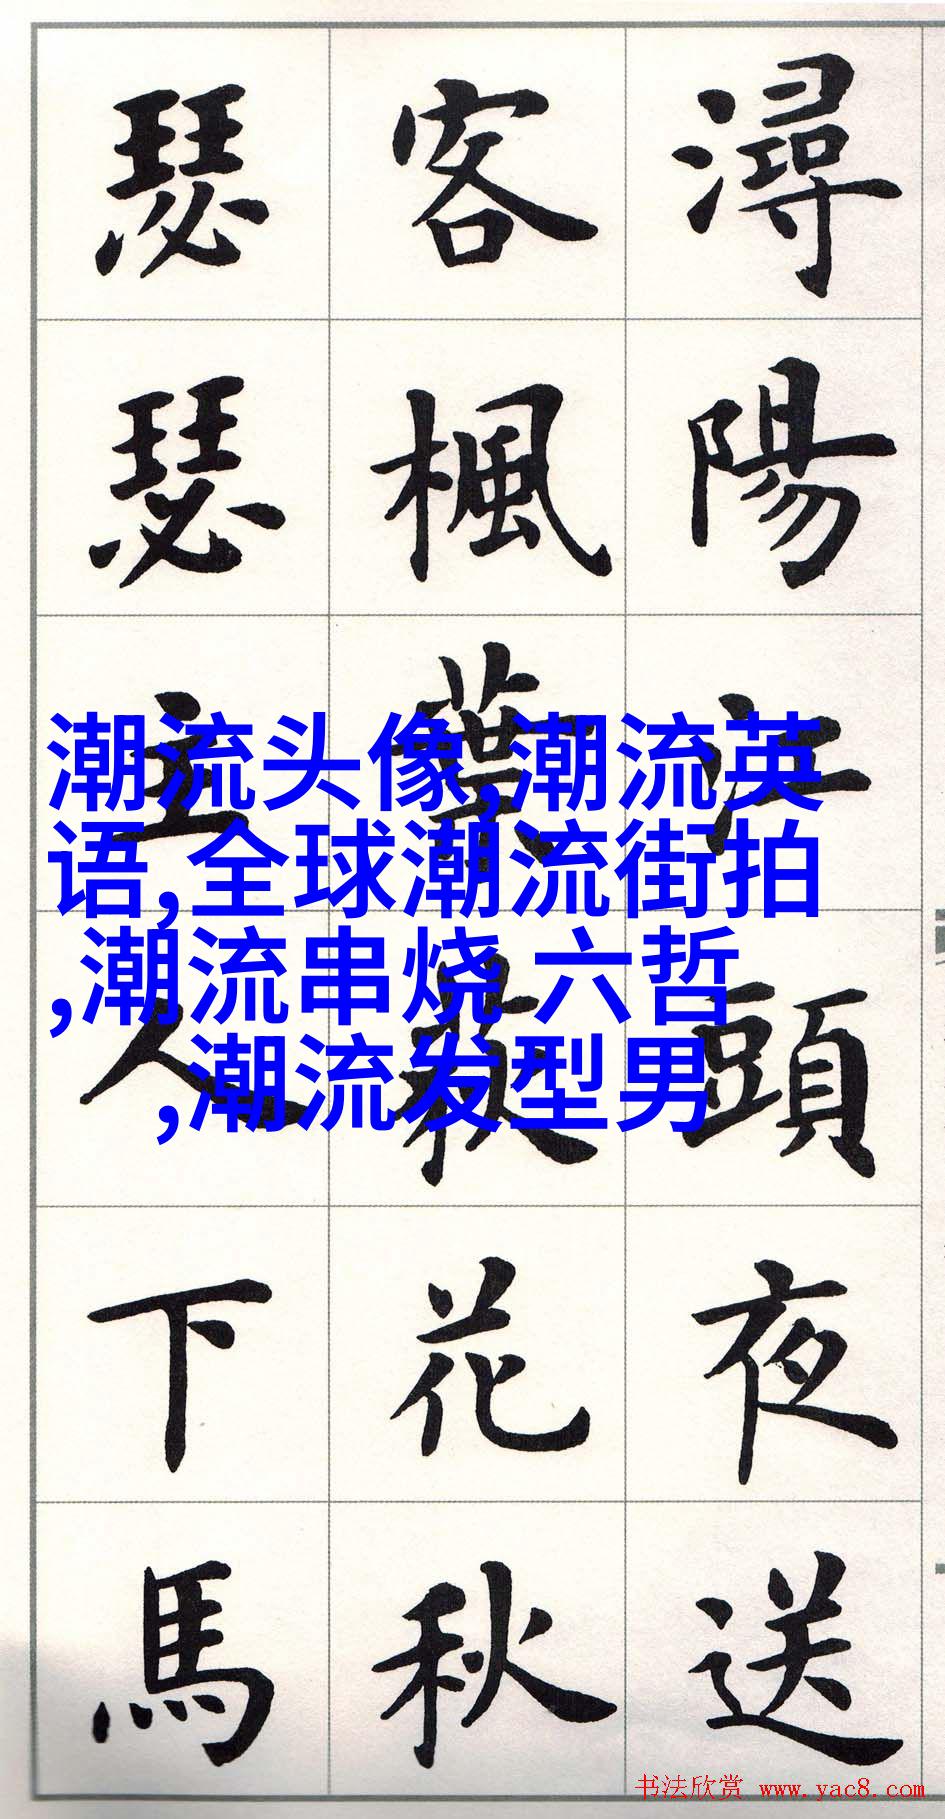 潯陽江頭夜送
客楓葉荻花秋
瑟瑟主人下馬
潮流头像,潮流英
语,全球潮流街拍
,潮流串烧 六哲
,潮流发型男
书法欣赏 www.yac8.com